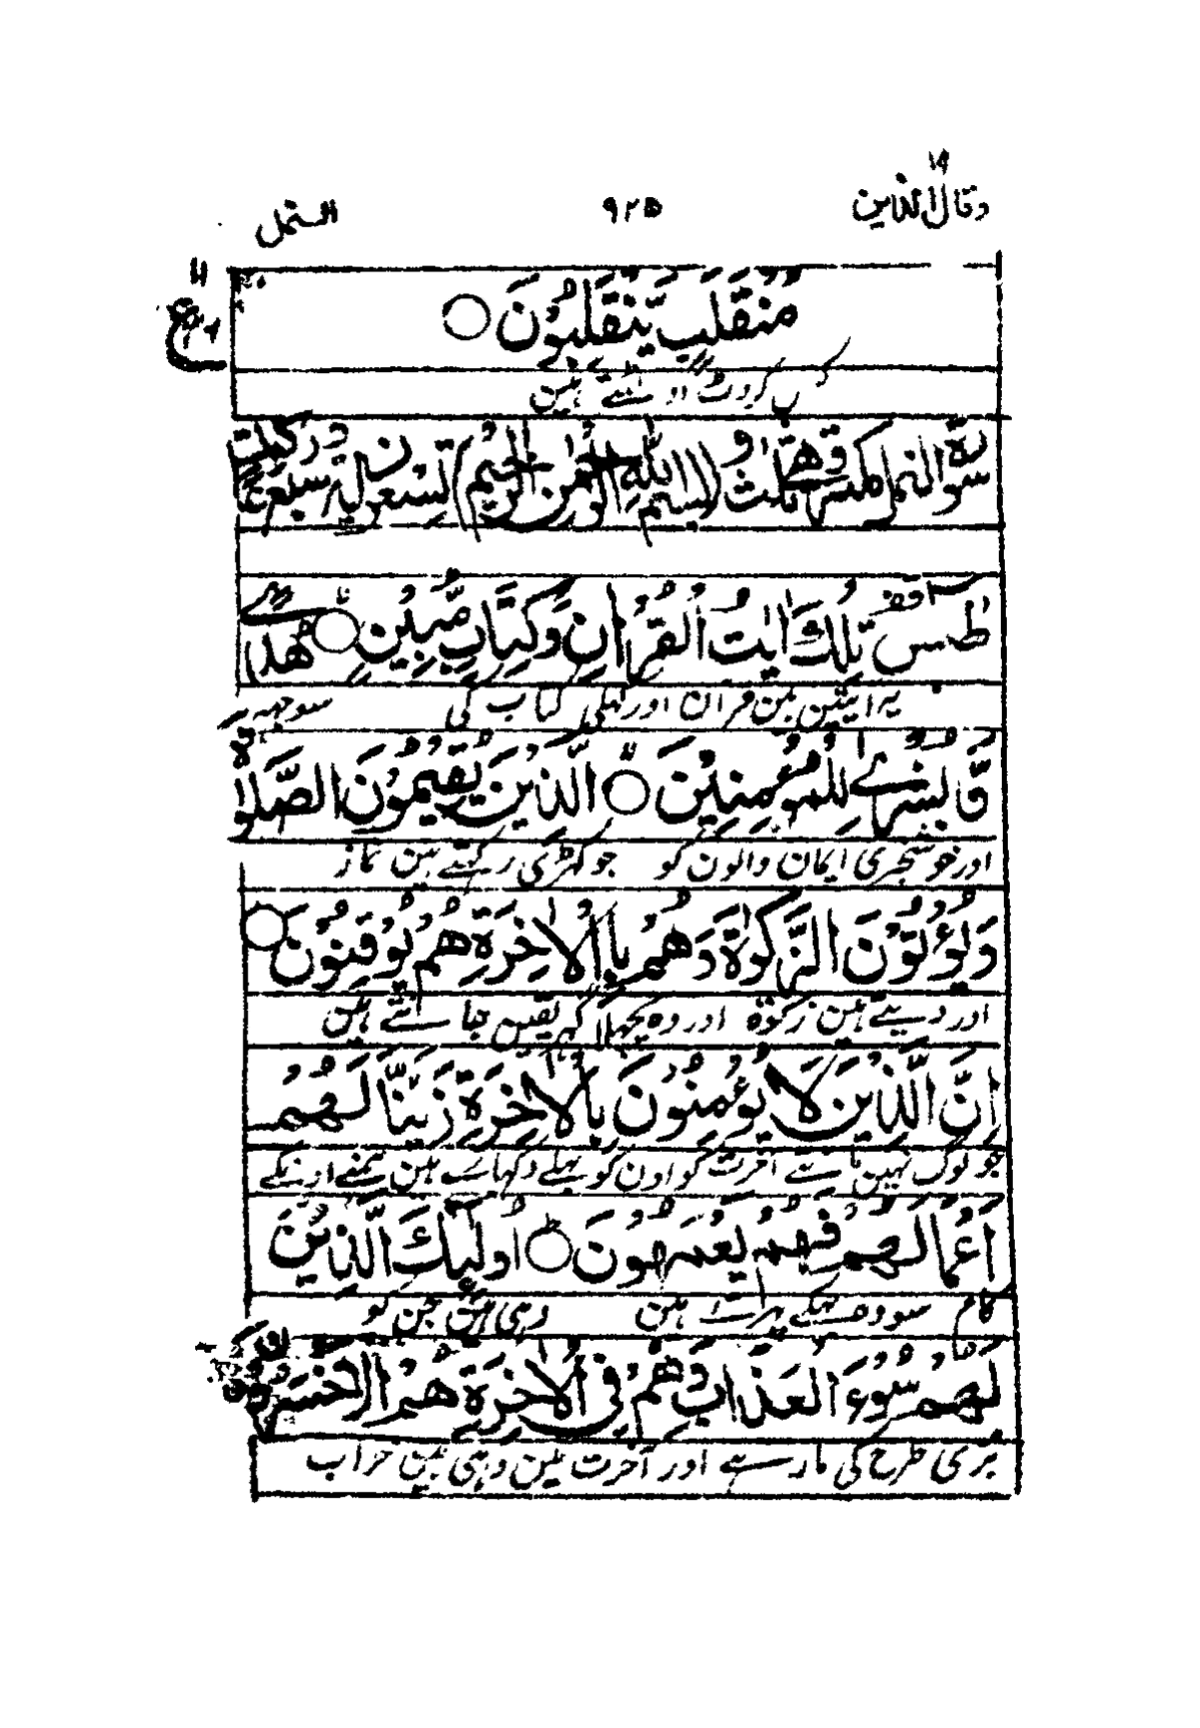 ۱۹
وقال الذين ۹۲۵ النمل
مُنْقَلَبٍ يَّنْقَلِبُوْنَ
کس کروٹ اولٹتے ہین
سورة النمل مكية وهي ثلث و بسم الله الرحمن الرحيم تسعون اية و سبع ركوعات
طٰسٓ تِلْكَ اٰيٰتُ الْقُرْاٰنِ وَكِتَابٍ مُّبِيْنٍ هُدًى
یہ آیتین ہین قرآن اور کھلی کتاب کی سوجھ
وَّبُشْرٰى لِلْمُؤْمِنِيْنَ الَّذِيْنَ يُقِيْمُوْنَ الصَّلٰوةَ
اور خوشخبری ایمان والون کو جو کھڑی رکھتے ہین نماز
وَيُؤْتُوْنَ الزَّكٰوةَ وَهُمْ بِالْاٰخِرَةِ هُمْ يُوْقِنُوْنَ
اور دیتے ہین زکوٰة اور وہ پچھلا گھر یقین جانتے ہین
اِنَّ الَّذِيْنَ لَا يُؤْمِنُوْنَ بِالْاٰخِرَةِ زَيَّنَّا لَهُمْ
جو لوگ نہین مانتے آخرت کو اون کو بھلے دکھائے ہین ہمنے اونکے
اَعْمَالَهُمْ فَهُمْ يَعْمَهُوْنَ اُولٰٓئِكَ الَّذِيْنَ
کام سو وہ بہکے پھرتے ہین وہی ہین جن کو
لَهُمْ سُوْٓءُ الْعَذَابِ وَهُمْ فِى الْاٰخِرَةِ هُمُ الْاَخْسَرُوْنَ
بری طرح کی مار ہے اور آخرت مین وہی ہین خراب